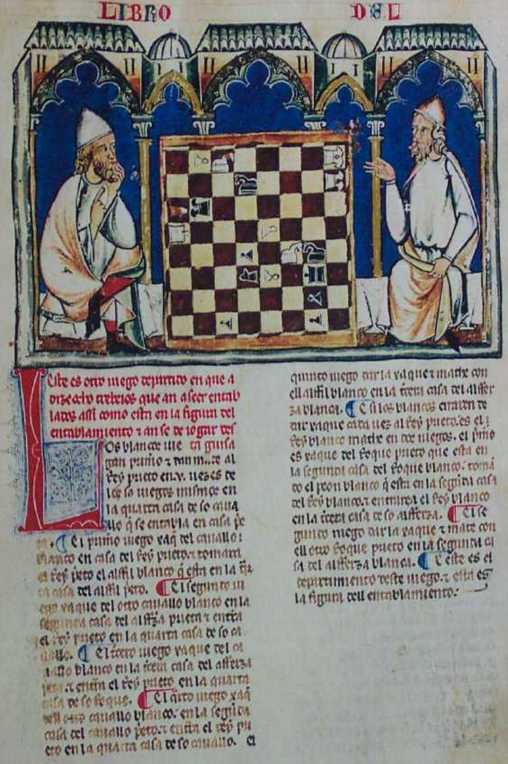 LIBRO DEL
Este es otro iuego departido en que a
dizeocho trebeios que an a seer entab
lados assi como estan en la figura del
entablamiento τ an se de iogar desta guisa
Los blancos
primero τ
Rey prieto en
iuegos
la quarta casa de so cava
llo que se entabla en casa pri
eta. El primo iuego xaq del cavallo
blanco en casa del Rey prieto τ tomara
el Rey prieto el alffil blanco q esta en la
casa del alffil prieto. El segundo iu
ego xaque del otro cavallo blanco en la
segunda casa del alffza prieta τ entra
el Rey prieto en la quarta casa de so ca
uallo. El terçero iuego xaque del ca
uallo blanco en la terçera casa del alfferza
prieta τ entra el Rey prieto en la quarta
casa de so Roque. El quarto iuego xaq
dell otro cauallo blanco en la segunda
casa del cauallo prieto τ entra el Rey pri
eto en la quarta casa de so cauallo. El
quinto iuego dar la xaque τ mate con
ell alffil blanco en la terçera casa del alffer
za blanca. E si los blancos erraren de
dar xaque cada uez al Rey prieto es el
Rey blanco mate en dos iuegos. el primo
es xaque del Roque prieto que esta en
la segunda casa del Roque blanco. toman
do el peon blanco q esta en la segunda casa
del Rey blanco τ entrara el Rey blanco
en la terçera casa de so alfferza. El se
gundo iuego dar la xaque τ mate con
ell otro Roque prieto en la segunda ca
sa del alfferza blanca. E este es el
departimiento deste iuego. τ esta es
la figura dell entablamiento.